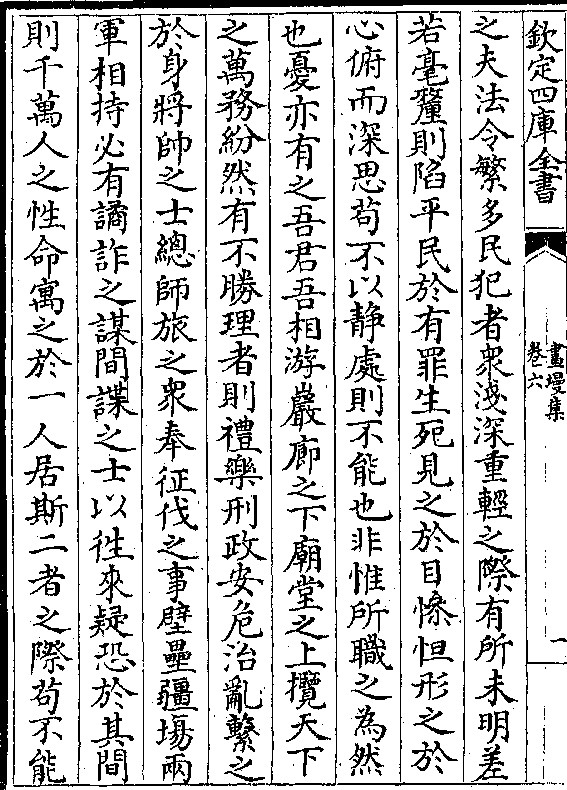 欽定四庫全書
畫墁集
卷六
一
之夫法令繁多民犯者衆淺深重輕之際有所未明差
若毫釐則陷平民於有罪生死見之於目慘怛形之於
心俯而深思苟不以静處則不能也非惟所職之為然
也憂亦有之吾君吾相游巖廊之下廟堂之上攬天下
之萬務紛然有不勝理者則禮樂刑政安危治亂繫之
於身將帥之士總師旅之衆奉征伐之事壁壘疆埸兩
軍相持必有譎詐之謀間諜之士以徃來疑恐於其間
則千萬人之性命寓之於一人居斯二者之際苟不能